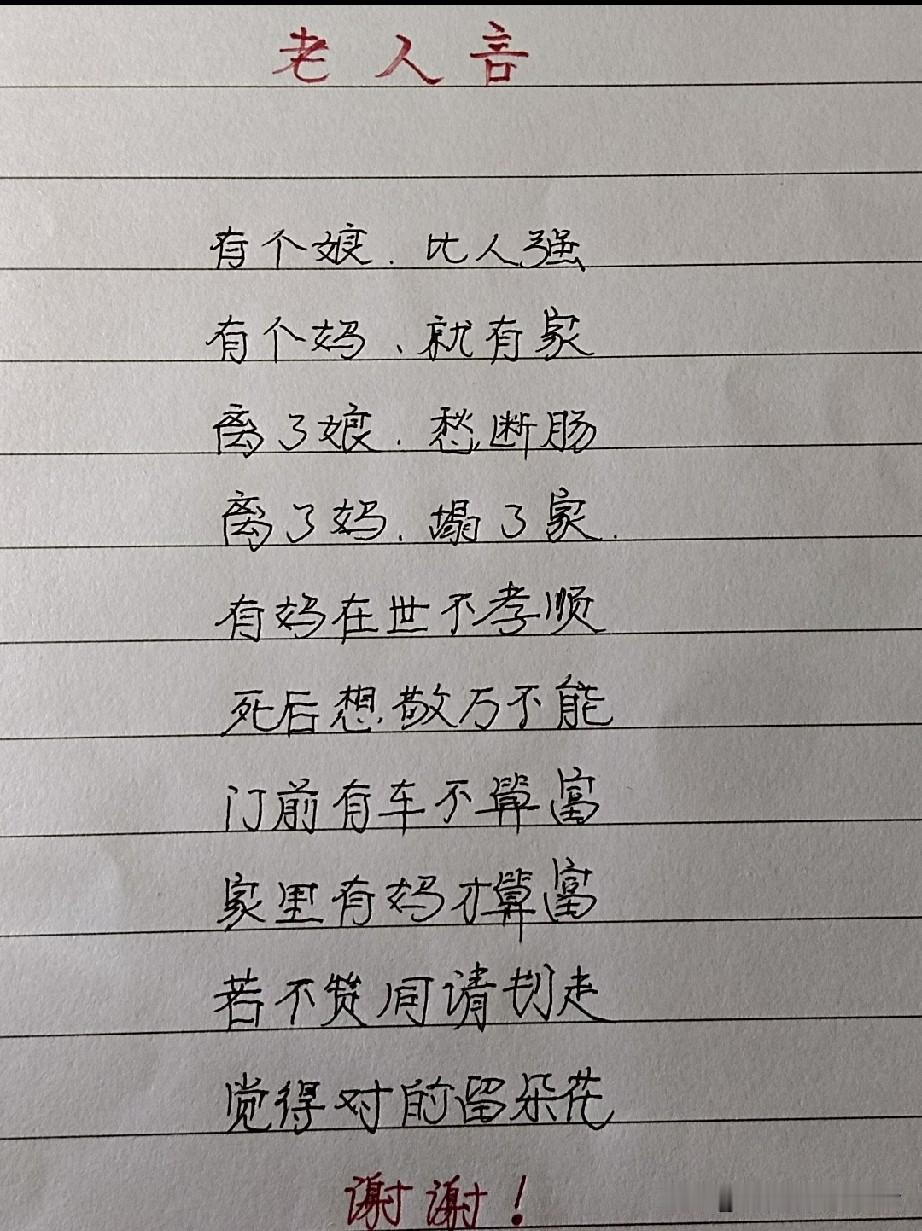 老人言
有个娘.比人强
有个妈、就有家
离了娘.愁断肠
离了妈.塌了家.
有妈在世不孝顺
死后想敬万不能
门前有车不算富
家里有妈才算富
若不赞同请划走
觉得对的留朵花
谢谢！